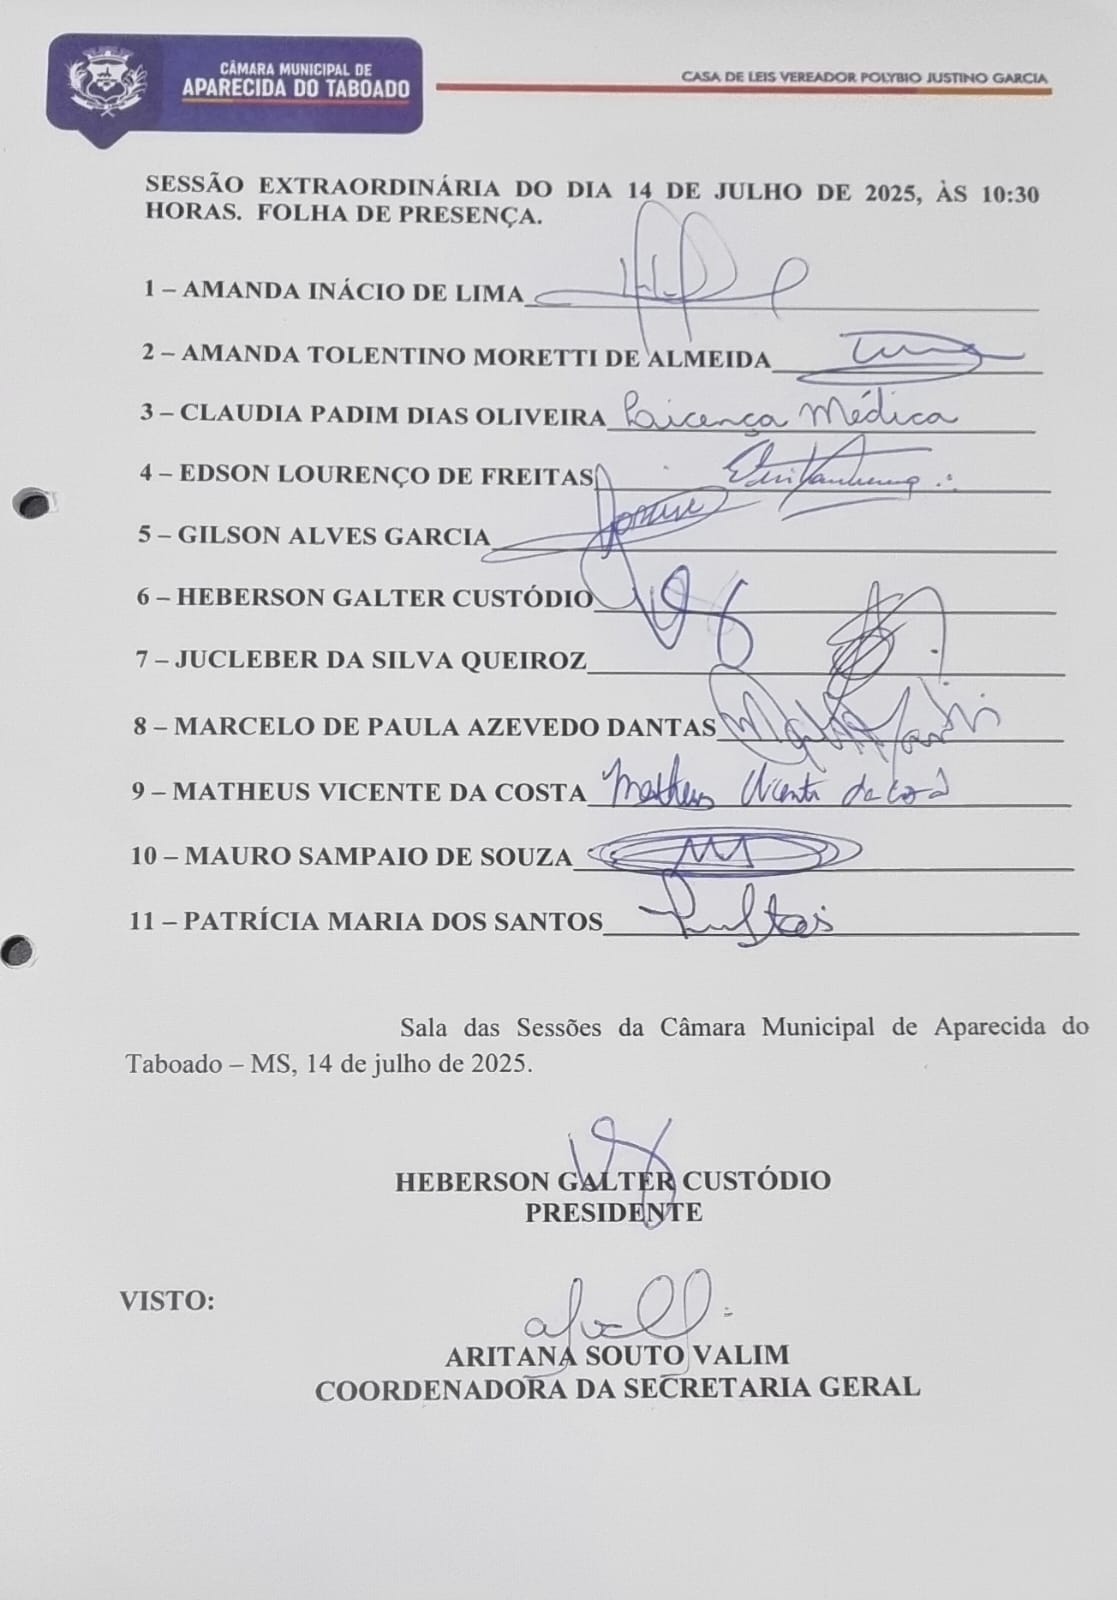 CÂMARA MUNICIPAL DE
APARECIDA DO TABOADO
CASA DE LEIS VEREADOR POLYBIO JUSTINO GARCIA
SESSÃO EXTRAORDINÁRIA DO DIA 14 DE JULHO DE 2025, ÀS 10:30
HORAS. FOLHA DE PRESENÇA.
1 – AMANDA INÁCIO DE LIMA
2 – AMANDA TOLENTINO MORETTI DE ALMEIDA
3 – CLAUDIA PADIM DIAS OLIVEIRA Licença Médica
4 – EDSON LOURENÇO DE FREITAS
5 – GILSON ALVES GARCIA
6 – HEBERSON GALTER CUSTÓDIO
7 – JUCLEBER DA SILVA QUEIROZ
8 – MARCELO DE PAULA AZEVEDO DANTAS
9 – MATHEUS VICENTE DA COSTA Matheus Vicente da Costa
10 – MAURO SAMPAIO DE SOUZA
11 – PATRÍCIA MARIA DOS SANTOS
Sala das Sessões da Câmara Municipal de Aparecida do
Taboado – MS, 14 de julho de 2025.
HEBERSON GALTER CUSTÓDIO
PRESIDENTE
VISTO:
ARITANA SOUTO VALIM
COORDENADORA DA SECRETARIA GERAL